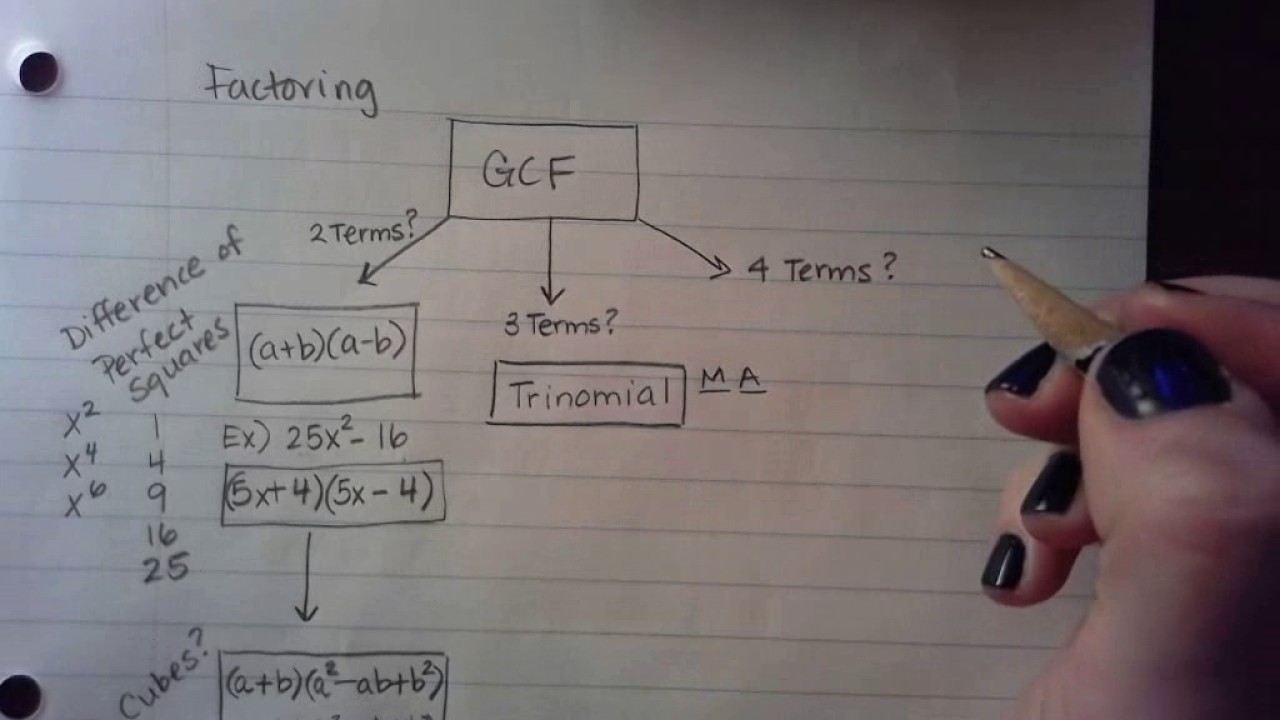 Factoring
GCF
2 Terms?
4 Terms?
3 Terms?
Difference of
Perfect
Squares
(a+b)(a-b)
Trinomial M A
x² 1
x⁴ 4
x⁶ 9
16
25
Ex) 25x² - 16
(5x+4)(5x-4)
Cubes?
(a+b)(a²-ab+b²)